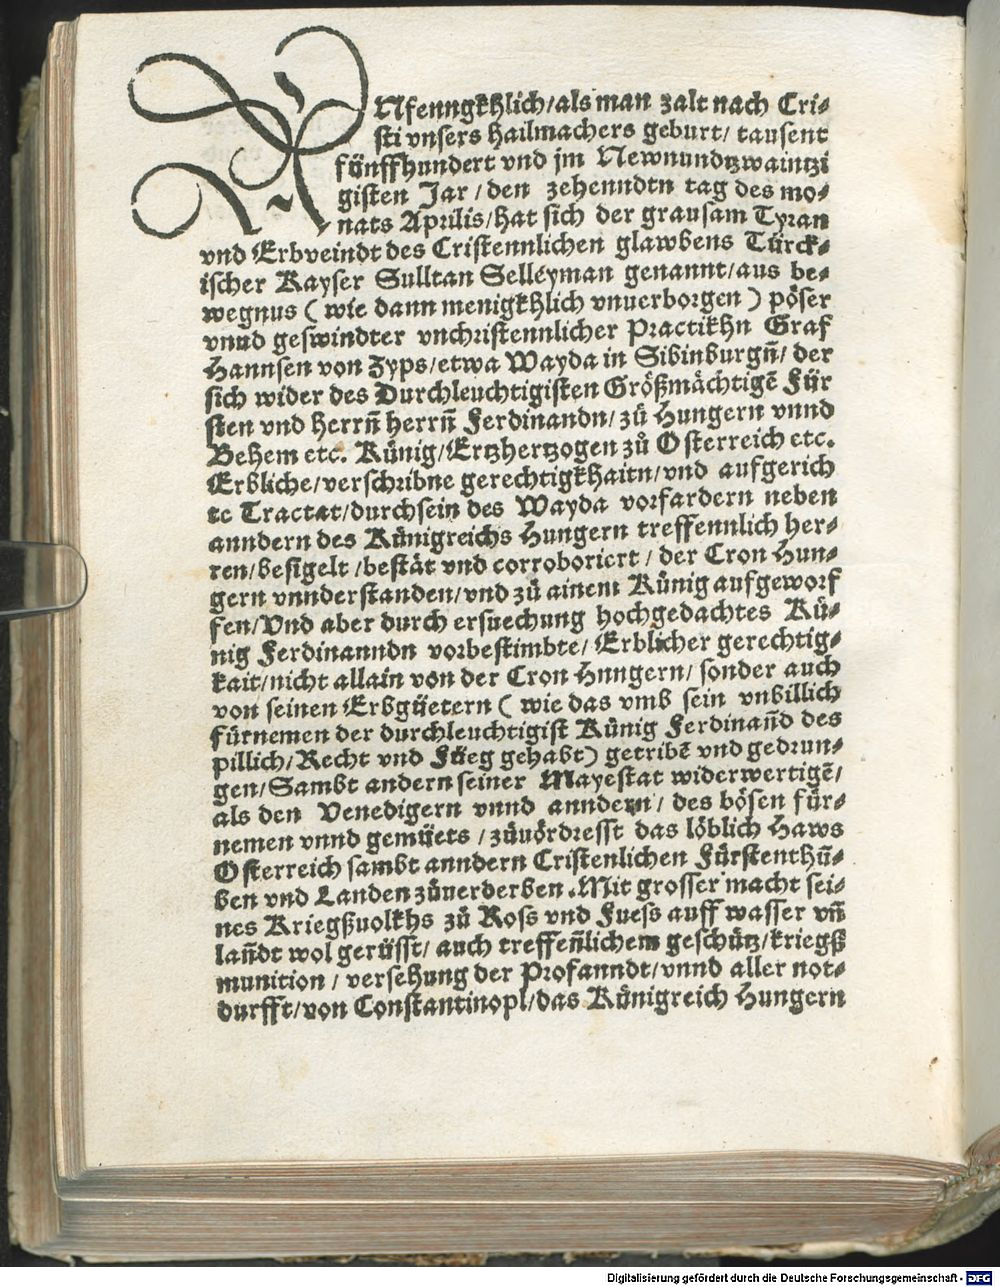 ANfenngkhlich/als man zalt nach Cri-
sti vnsers hailmachers geburt/ tausent
fünffhundert vnd jm Newnundtzwaintzi
gisten Jar/den zehenndtn tag des mo-
nats Aprilis/hat sich der grausam Tyran
vnd Erbveindt des Cristennlichen glawbens Türck-
ischer Kayser Sulltan Selleyman genannt/aus be-
wegnus ( wie dann menigkhlich vnuerborgen ) pöser
vnnd geswindter vnchristennlicher Practikhn Graf
Hannsen von Zyps/etwa Wayda in Sibinburgn̄/ der
sich wider des Durchleuchtigisten Größmächtigē Für
sten vnd herrn̄ herrn̄ Ferdinandn/ zů Hungern vnnd
Behem etc. Künig/Ertzhertzogen zů Osterreich etc.
Erbliche/verschribne gerechtigkhaitn/vnd aufgerich
te Tractat/durchsein des Wayda vorfardern neben
anndern des Künigreichs Hungern treffennlich her-
ren/besigelt /bestät vnd corroboriert / der Cron Hun-
gern vnnderstanden/vnd zů ainem Künig aufgeworf
fen/Vnd aber durch ersuechung hochgedachtes Kü-
nig Ferdinanndn vorbestimbte/ Erblicher gerechtig-
kait/nicht allain von der Cron Hnngern/ sonder auch
von seinen Erbgüetern ( wie das vmb sein vnbillich
fürnemen der durchleuchtigist Künig Ferdinan̄d des
pillich/Recht vnd Füeg gehabt) getribē vnd gedrun-
gen/Sambt andern seiner Mayestat widerwertigē/
als den Venedigern vnnd anndern/ des bösen für-
nemen vnnd gemüets /zůuördresst das löblich Haws
Osterreich sambt anndern Cristenlichen Fürstenthū-
ben vnd Landen zůuerderben. Mit grosser macht sei-
nes Kriegßuolkhs zů Ross vnd Fuess auff wasser vn̄
lan̄dt wol gerüsst/ auch treffen̄lichem geschütz/kriegß
munition / versehung der Profanndt/vnnd aller not-
durfft/von Constantinopl/das Künigreich Hungern
Digitalisierung gefördert durch die Deutsche Forschungsgemeinschaft - DFG